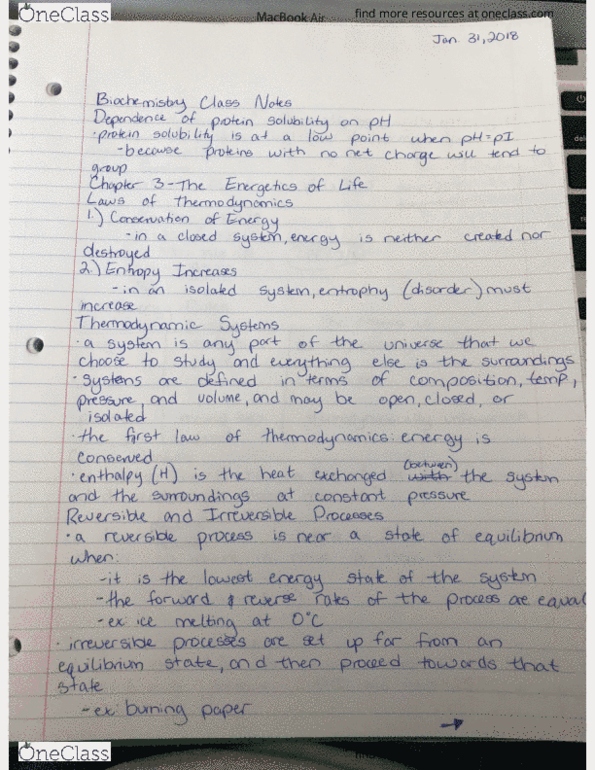 OneClass
MacBook Air
find more resources at oneclass.com
Jan. 31, 2018
Biochemistry Class Notes
Dependence of protein solubility on pH
· protein solubility is at a low point when pH=pI
- because proteins with no net charge will tend to
group
Chapter 3 - The Energetics of Life
Laws of Thermodynamics
1.) Conservation of Energy
- in a closed system, energy is neither created nor
destroyed
2.) Entropy Increases
- in an isolated system, entrophy (disorder) must
increase
Thermodynamic Systems
· a system is any part of the universe that we
choose to study and everything else is the surroundings
· systems are defined in terms of composition, temp,
pressure, and volume, and may be open, closed, or
isolated
· the first law of thermodynamics: energy is
conserved
· enthalpy (H) is the heat exchanged with (between) the system
and the surroundings at constant pressure
Reversible and Irreversible Processes
· a reversible process is near a state of equilibrium
when:
- it is the lowest energy state of the system
- the forward & reverse rates of the process are equal
- ex: ice melting at 0°C
· irreversible processes are set up far from an
equilibrium state, and then proceed towards that
state
- ex: burning paper
→
OneClass